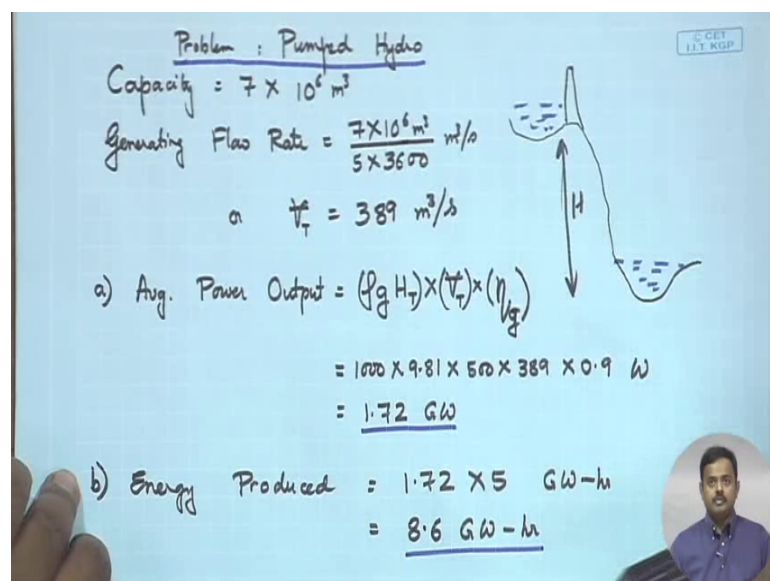 Problem : Pumped Hydro
© CET
I.I.T. KGP
Capacity = 7 × 10⁶ m³
Generating Flow Rate = 7×10⁶ m³ / 5×3600 m³/s
or V̶_T = 389 m³/s
H
a) Avg. Power Output = (ρg H_T)×(V̶_T)×(η_g)
= 1000 × 9.81 × 500 × 389 × 0.9 W
= 1.72 GW
b) Energy Produced = 1.72 × 5 GW-hr
= 8.6 GW-hr